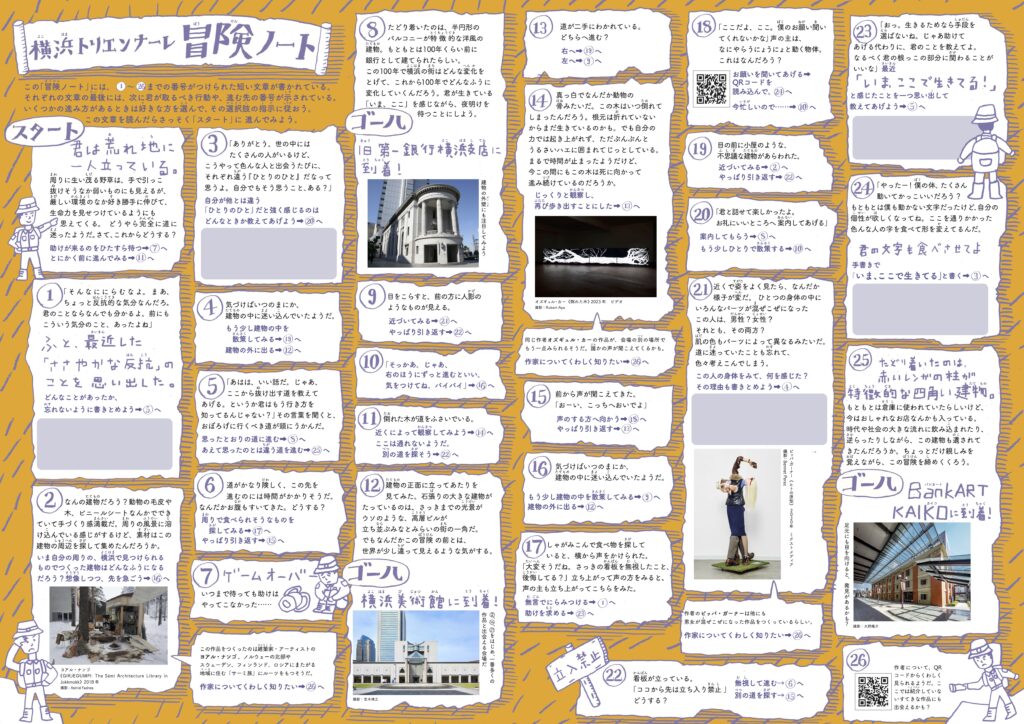 横浜トリエンナーレ 冒険ノート
この「冒険ノート」には、①〜㉖までの番号がつけられた短い文章が書かれている。
それぞれの文章の最後には、次に君が取るべき行動や、進む先の番号が示されている。
いくつかの進み方があるときは好きな方を選んで、その選択肢の指示に従おう。
この文章を読んだらさっそく「スタート」に進んでみよう。
スタート
君は荒れ地に
一人立っている。
周りに生い茂る野草は、手で引っこ
抜けそうなか弱いものにも見えるが、
厳しい環境のなか好き勝手に伸びて、
生命力を見せつけているようにも
思えてくる。 どうやら完全に道に
迷ったようだ。さて、これからどうする?
助けが来るのをひたすら待つ→⑦へ
とにかく前に進んでみる→⑪へ
1
「そんなににらむなよ。まあ、
ちょっと反抗的な気分なんだろ。
君のことならなんでも分かるよ。前にも
こういう気分のこと、あったよね」
ふと、最近した
「ささやかな反抗」の
ことを思い出した。
どんなことがあったか、
忘れないように書きとめよう→⑤へ
2
なんの建物だろう?動物の毛皮や
木、ビニールシートなんかででき
ていて手づくり感満載だ。周りの風景に溶
け込んでいる感じがするけど、素材はこの
建物の周辺を探して集めたんだろうか。
いま自分の周りの、横浜で見つけられる
ものでつくった建物はどんなふうになる
だろう?想像しつつ、先を急ごう→⑯へ
ヨアル・ナンゴ
《GIRJEGUMPI: The Sámi Architecture Library in
Jokkmokk》2018年
撮影:Astrid Fadnes
3
「ありがとう。世の中には
たくさんの人がいるけど、
こうやって色んな人と出会うたびに、
それぞれ違う「ひとりのひと」だなって
思うよ。自分でもそう思うこと、ある?」
自分が他とは違う
「ひとりのひと」だと強く感じるのは
どんなときか教えてあげよう→⑳へ
4
気づけばいつのまにか、
建物の中に迷い込んでいたようだ。
もう少し建物の中を
散策してみる→⑲へ
建物の外に出る→⑫へ
5
「あはは、いい話だ。じゃあ、
ここから抜け出す道を教えて
あげる。というか君はもう行き方を
知ってるんじゃない?」その言葉を聞くと、
おぼろげに行くべき道が頭にうかんだ。
思ったとおりの道に進む→⑧へ
あえて思ったのとは違う道を進む→㉕へ
6
道がかなり険しく、この先を
進むのには時間がかかりそうだ。
なんだかお腹もすいてきた。どうする?
周りで食べられそうなものを
探してみる→⑰へ
やっぱり引き返す→⑮へ
7
ゲームオーバー
いつまで待っても助けは
やってこなかった……
この作品をつくったのは建築家・アーティストの
ヨアル・ナンゴ。ノルウェーの北部や
スウェーデン、フィンランド、ロシアにまたがる
地域に住む「サーミ族」にルーツをもつそうだ。
作家についてくわしく知りたい→㉖へ
8
たどり着いたのは、半円形の
バルコニーが特徴的な洋風の
建物。もともとは100年くらい前に
銀行として建てられたらしい。
この100年で横浜の街はどんな変化を
とげて、これから100年でどんなふうに
変化していくんだろう。君が生きている
「いま、ここ」を感じながら、夜明けを
待つことにしよう。
ゴール
旧第一銀行横浜支店に
到着!
建物の外壁にも注目してみよう
9
目をこらすと、前の方に人影の
ようなものが見える。
近づいてみる→㉑へ
やっぱり引き返す→㉒へ
10
「そっかあ、じゃあ、
右のほうにずっと進むといい、
気をつけてね、バイバイ」→⑯へ
11
倒れた木が道をふさいでいる。
近くによって観察してみよう→⑭へ
ここは通れないようだ。
別の道を探そう→㉒へ
12
建物の正面に立ってあたりを
見てみた。石張りの大きな建物が
たっているのは、さっきまでの光景が
ウソのような、高層ビルが
立ち並ぶみなとみらいの街の一角だ。
でもなんだかこの冒険の前とは、
世界が少し違って見えるような気がする。
ゴール
横浜美術館に到着!
②、⑭、㉑をはじめ、一番多くの
作品と出会える会場だ
撮影:笠木靖之
13
道が二手にわかれている。
どちらへ進む?
右へ→⑲へ
左へ→⑨へ
14
真っ白でなんだか動物の
骨みたいだ。この木はいつ倒れて
しまったんだろう。根元は折れていない
からまだ生きているのかも。でも自分の
力では起き上がれず、ただぶんぶんと
うるさいハエに囲まれてじっとしている。
まるで時間が止まったようだけど、
今この間にもこの木は死に向かって
進み続けているのだろうか。
じっくりと観察し、
再び歩き出すことにした→⑬へ
オズギュル・カー《倒れた木》2023年 ビデオ
撮影:Robert Apa
同じ作者オズギュル・カーの作品が、会場の別の場所で
もう一点みられるそうだ。誰かの声が聞こえてくるかも。
作家についてくわしく知りたい→㉖へ
15
前から声が聞こえてきた。
「おーい、こっちへおいでよ」
声のする方へ向かう→⑱へ
やっぱり引き返す→⑬へ
16
気づけばいつのまにか、
建物の中に迷い込んでいたようだ。
もう少し建物の中を散策してみる→⑨へ
建物の外に出る→⑫へ
17
しゃがみこんで食べ物を探して
いると、横から声をかけられた。
「大変そうだね。さっきの看板を無視したこと、
後悔してる?」立ち上がって声の方をみると、
声の主も立ち上がってこちらをみた。
無言でにらみつける→①へ
助けを求める→㉓へ
立入禁止
22
看板が立っている。
「ココから先は立ち入り禁止」
どうする?
無視して進む→⑥へ
別の道を探す→⑮へ
18
「ここだよ、ここ。僕のお願い聞い
てくれないかな」声の主は、
なにやらうにょうにょと動く物体。
これはなんだろう?
お願いを聞いてあげる→
QRコードを
読み込んで、㉔へ
今忙しいので……→⑩へ
19
目の前に小屋のような、
不思議な建物があらわれた。
近づいてみる→②へ
やっぱり引き返す→㉒へ
20
「君と話せて楽しかったよ。
お礼にいいところへ案内してあげる」
案内してもらう→⑤へ
もう少しひとりで散策する→⑩へ
21
近くで姿をよく見たら、なんだか
様子が変だ。ひとつの身体の中に
いろんなパーツが混ぜこぜになった
この人は、男性?女性?
それとも、その両方?
肌の色もパーツによって異なるみたいだ。
道に迷っていたことも忘れて、
色々考えこんでしまう。
この人の身体をみて、何を感じた?
その理由も書きとめよう→④へ
作者のピッパ・ガーナーは他にも
男女が混ぜこぜになった作品をつくっているらしい。
作家についてくわしく知りたい→㉖へ
23
「おっ。生きるためなら手段を
選ばないね。じゃあ助けて
あげる代わりに、君のことを教えてよ。
なるべく君の根っこの部分に関わることが
いいな」最近
「いま、ここで生きてる!」
と感じたことを一つ思い出して
教えてあげよう→⑤へ
24
「やったー!僕の体、たくさん
動いてかっこいいだろう?
もともとは僕も動かない文字だったけど、自分の
個性が欲しくなってね。ここを通りかかった
色んな人の字を食べて形を変えてるんだ。
君の文字も食べさせてよ
手書きで
「いま、ここで生きてる」と書く→③へ
25
たどり着いたのは、
赤いレンガの柱が
特徴的な四角い建物。
もともとは倉庫に使われていたらしいけど、
今はおしゃれなお店なんかも入っている。
時代や社会の大きな流れに飲み込まれたり、
逆らったりしながら、この建物も遺されて
きたんだろうか。ちょっとだけ親しみを
覚えながら、この冒険を締めくくろう。
ゴール
BankART
KAIKOに到着!
足元にも目を向けると、発見があるかも?
26
作者について、QR
コードからくわしく
見られるようだ。こ
こでは紹介していな
いすてきな作品にも
出会えるかも?